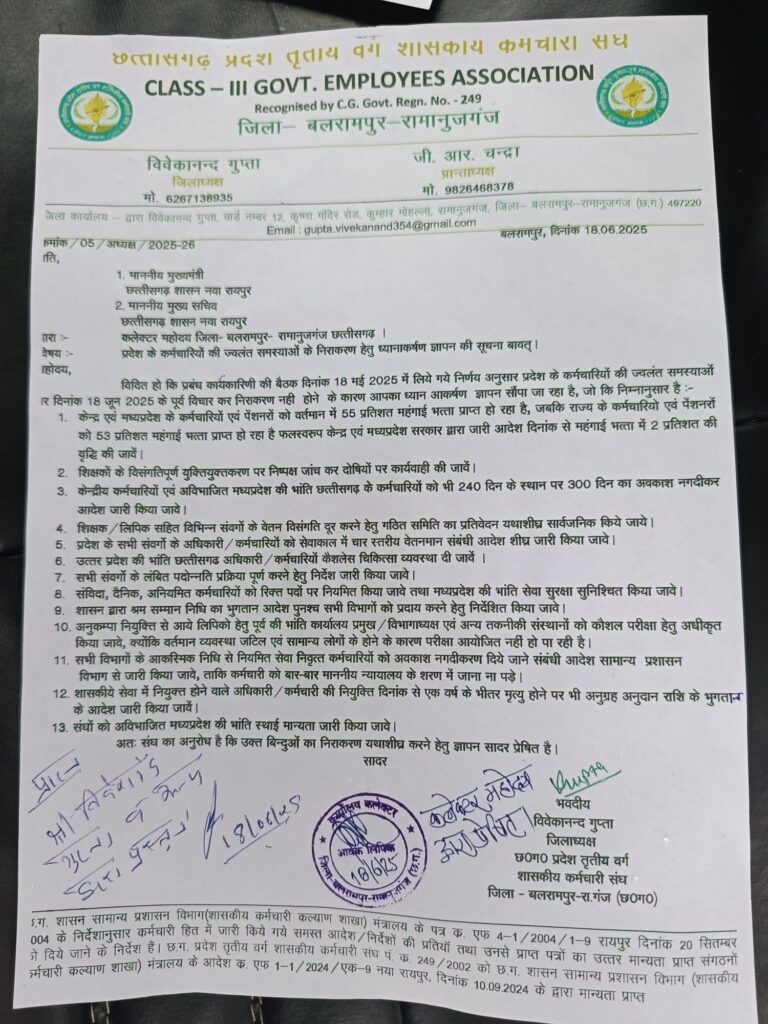 छत्तीसगढ़ प्रदेश तृतीय वर्ग शासकीय कर्मचारी संघ
CLASS – III GOVT. EMPLOYEES ASSOCIATION
Recognised by C.G. Govt. Regn. No. - 249
जिला– बलरामपुर–रामानुजगंज
विवेकानन्द गुप्ता
जिलाध्यक्ष
मो. 6267138935
जी. आर. चन्द्रा
प्रान्ताध्यक्ष
मो. 9826468378
जिला कार्यालय – द्वारा विवेकानन्द गुप्ता, वार्ड नम्बर 12, कृष्णा मंदिर रोड, कुम्हार मोहल्ला, रामानुजगंज, जिला– बलरामपुर–रामानुजगंज (छ.ग.) 497220
Email : gupta.vivekanand354@gmail.com
क्रमांक/05/अध्यक्ष/2025-26
बलरामपुर, दिनांक 18.06.2025
ति,
1. माननीय मुख्यमंत्री
छत्तीसगढ़ शासन नवा रायपुर
2. माननीय मुख्य सचिव
छत्तीसगढ़ शासन नवा रायपुर
द्वारा :- कलेक्टर महोदय जिला- बलरामपुर- रामानुजगंज छत्तीसगढ़ ।
विषय :- प्रदेश के कर्मचारियों की ज्वलंत समस्याओं के निराकरण हेतु ध्यानाकर्षण ज्ञापन की सूचना बावत्।
महोदय,
विदित हो कि प्रबंध कार्यकारिणी की बैठक दिनांक 18 मई 2025 में लिये गये निर्णय अनुसार प्रदेश के कर्मचारियों की ज्वलंत समस्याओं
र दिनांक 18 जून 2025 के पूर्व विचार कर निराकरण नही होने के कारण आपका ध्यान आकर्षण ज्ञापन सौंपा जा रहा है, जो कि निम्नानुसार है :-
1. केन्द्र एवं मध्यप्रदेश के कर्मचारियों एवं पेंशनरों को वर्तमान में 55 प्रतिशत महंगाई भत्ता प्राप्त हो रहा है, जबकि राज्य के कर्मचारियो एवं पेंशनरों
को 53 प्रतिशत महंगाई भत्ता प्राप्त हो रहा है फलस्वरुप केन्द्र एवं मध्यप्रदेश सरकार द्वारा जारी आदेश दिनांक से महंगाई भत्ता में 2 प्रतिशत की
वृद्धि की जावें।
2. शिक्षकों के विसंगतिपूर्ण युक्तियुक्तकरण पर निष्पक्ष जांच कर दोषियों पर कार्यवाही की जावें।
3. केन्द्रीय कर्मचारियों एवं अविभाजित मध्यप्रदेश की भांति छत्तीसगढ़ के कर्मचारियों को भी 240 दिन के स्थान पर 300 दिन का अवकाश नगदीकर
आदेश जारी किया जावे।
4. शिक्षक/लिपिक सहित विभिन्न संवर्गो के वेतन विसंगति दूर करने हेतु गठित समिति का प्रतिवेदन यथाशीघ्र सार्वजनिक किये जाये।
5. प्रदेश के सभी संवर्गो के अधिकारी/कर्मचारियों को सेवाकाल में चार स्तरीय वेतनमान संबंधी आदेश शीघ्र जारी किया जावें।
6. उत्तर प्रदेश की भांति छत्तीसगढ अधिकारी/कर्मचारियों कैशलेस चिकित्सा व्यवस्था दी जावें ।
7. सभी संवर्गो के लंबित पदोन्नति प्रक्रिया पूर्ण करने हेतु निर्देश जारी किया जावे।
8. संविदा, दैनिक, अनियमित कर्मचारियों को रिक्त पदों पर नियमित किया जावे तथा मध्यप्रदेश की भांति सेवा सुरक्षा सुनिश्चित किया जावे।
9. शासन द्वारा श्रम सम्मान निधि का भुगतान आदेश पुनश्च सभी विभागों को प्रदाय करने हेतु निर्देशित किया जावे।
10. अनुकम्पा नियुक्ति से आये लिपिको हेतु पूर्व की भांति कार्यालय प्रमुख/विभागाध्यक्ष एवं अन्य तकनीकी संस्थानों को कौशल परीक्षा हेतु अधीकृत
किया जावे, क्योंकि वर्तमान व्यवस्था जटिल एवं सामान्य लोगों के होने के कारण परीक्षा आयोजित नहीं हो पा रही है।
11. सभी विभागों के आकस्मिक निधि से नियमित सेवा निवृत्त कर्मचारियों को अवकाश नगदीकरण दिये जाने संबंधी आदेश सामान्य प्रशासन
विभाग से जारी किया जावे, ताकि कर्मचारी को बार-बार माननीय न्यायालय के शरण में जाना ना पड़े।
12. शासकीये सेवा में नियुक्त होने वाले अधिकारी/कर्मचारी की नियुक्ति दिनांक से एक वर्ष के भीतर मृत्यु होने पर भी अनुग्रह अनुदान राशि के भुगतान
के आदेश जारी किया जावें।
13. संघों को अविभाजित मध्यप्रदेश की भांति स्थाई मान्यता जारी किया जावे।
अतः संघ का अनुरोध है कि उक्त बिन्दुओं का निराकरण यथाशीघ्र करने हेतु ज्ञापन सादर प्रेषित है।
सादर
18/06/25
कार्यालय कलेक्टर
आवक लिपिक
18/6/25
जिला-बलरामपुर-रामानुजगंज (छ.ग.)
कलेक्टर महोदय
द्वारा प्रेषित।
Gupta
भवदीय
विवेकानन्द गुप्ता
जिलाध्यक्ष
छ0ग0 प्रदेश तृतीय वर्ग
शासकीय कर्मचारी संघ
जिला - बलरामपुर-रा.गंज (छ0ग0)
छ.ग. शासन सामान्य प्रशासन विभाग(शासकीय कर्मचारी कल्याण शाखा) मंत्रालय के पत्र क. एफ 4-1/2004/1-9 रायपुर दिनांक 20 सितम्बर
004 के निर्देशानुसार कर्मचारी हित में जारी किये गये समस्त आदेश/निर्देशों की प्रतियाँ तथा उनसे प्राप्त पत्रों का उत्तर मान्यता प्राप्त संगठनों
ो दिये जाने के निर्देश हैं। छ.ग. प्रदेश तृतीय वर्ग शासकीय कर्मचारी संघ पं. क. 249/2002 को छ.ग. शासन सामान्य प्रशासन विभाग (शासकीय
र्मचारी कल्याण शाखा) मंत्रालय के आदेश क. एफ 1-1/2024/एक-9 नवा रायपुर, दिनांक 10.09.2024 के द्वारा मान्यता प्राप्त